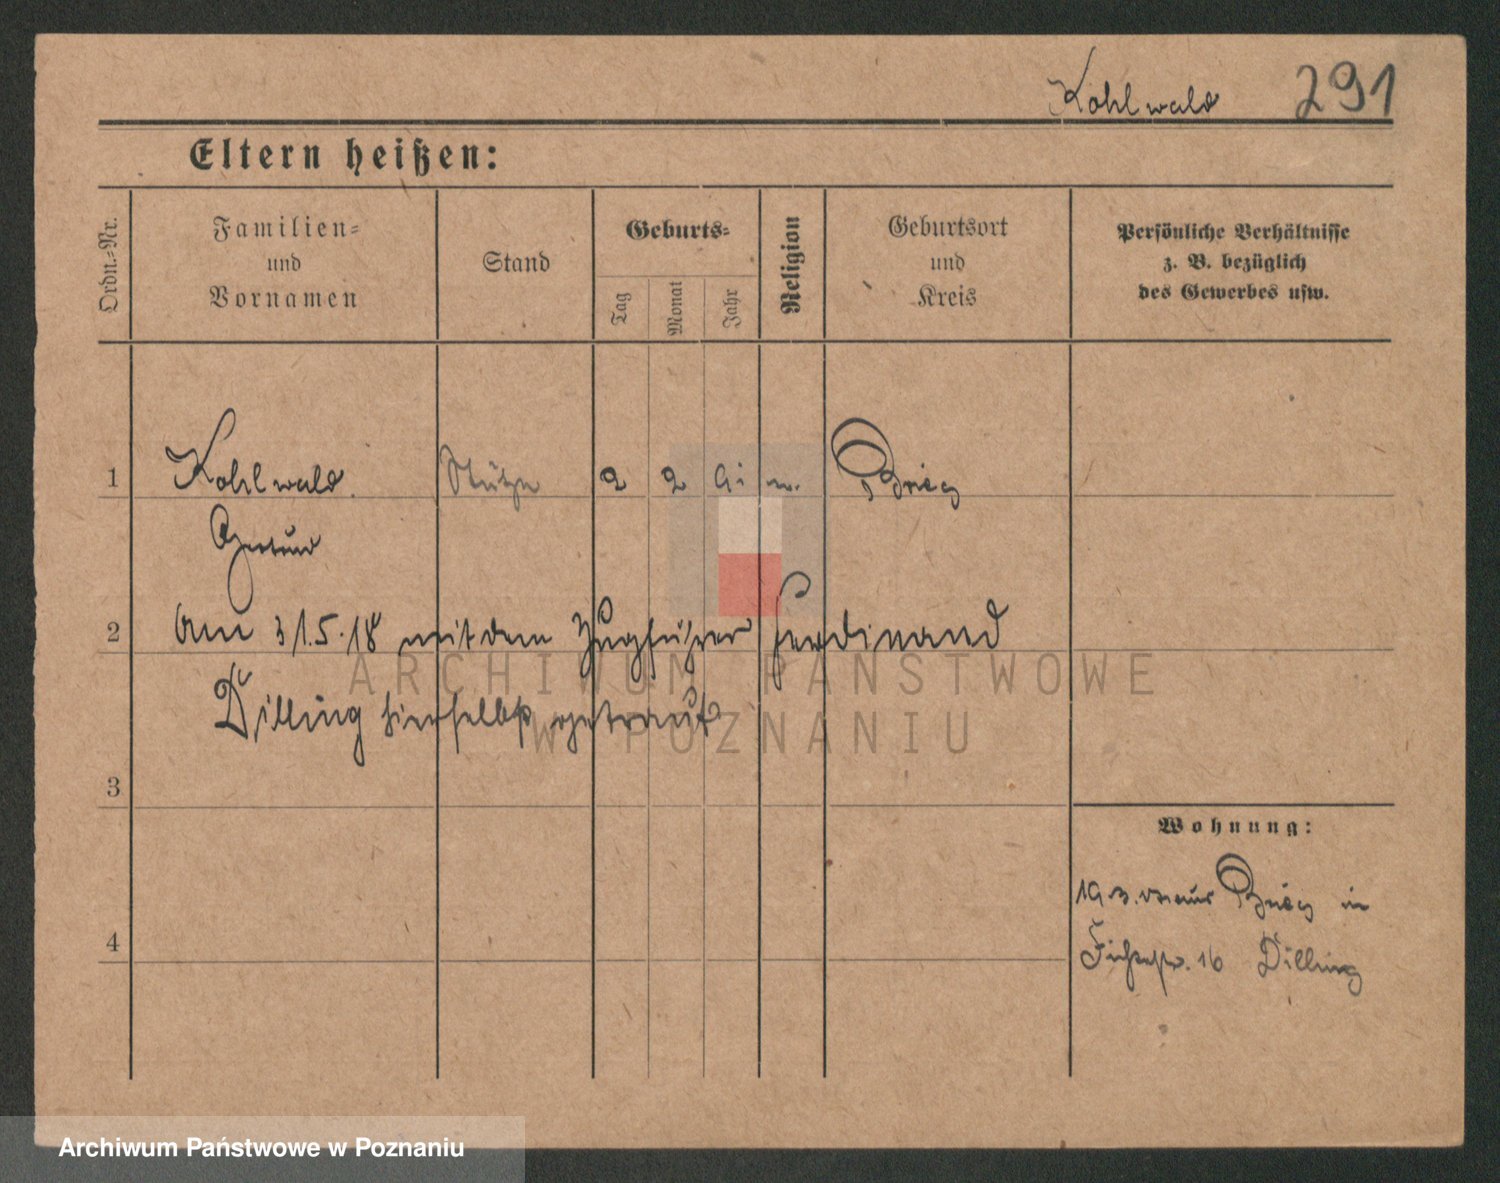 Kohlwald 291
Eltern heißen:
Ordn.=Nr.
Familien=
und
Vornamen
Stand
Geburts=
Tag
Monat
Jahr
Religion
Geburtsort
und
Kreis
Persönliche Verhältnisse
z. B. bezüglich
des Gewerbes usw.
1 Kohlwald Stütze 2 2 Brieg
Gertrud
2 Am 31.5.18 mit dem Zugführer Ferdinand
Dilling hierselbst getraut
ARCHIWUM PAŃSTWOWE
W POZNANIU
3
Wohnung:
19 3. aus Brieg in
4
Fichtestr. 16 Dilling
Archiwum Państwowe w Poznaniu